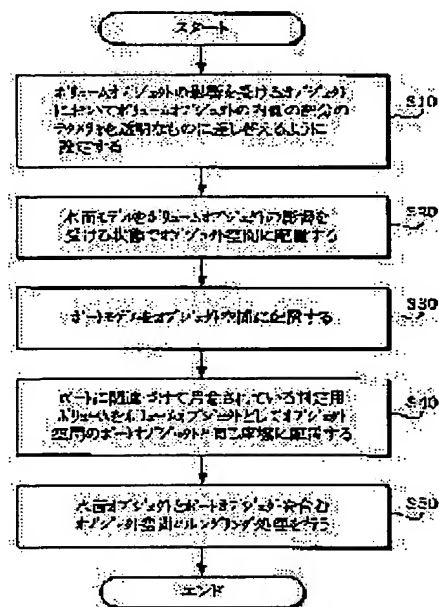 スタート
ボリュームオブジェクトの影響を受けるオブジェクト
においてボリュームオブジェクトの内側の部分の
テクスチャを透明なものに差し替えるように
設定する
S10
水面モデルをボリュームオブジェクトの影響を
受ける状態でオブジェクト空間に配置する
S20
ボートモデルをオブジェクト空間に配置する
S30
ボートに関連づけて用意されている判定用
ボリュームをボリュームオブジェクトとしてオブジェクト
空間のボートオブジェクトと同じ座標に配置する
S40
水面オブジェクトとボートオブジェクトを含む
オブジェクト空間のレンダリング処理を行う
S50
エンド